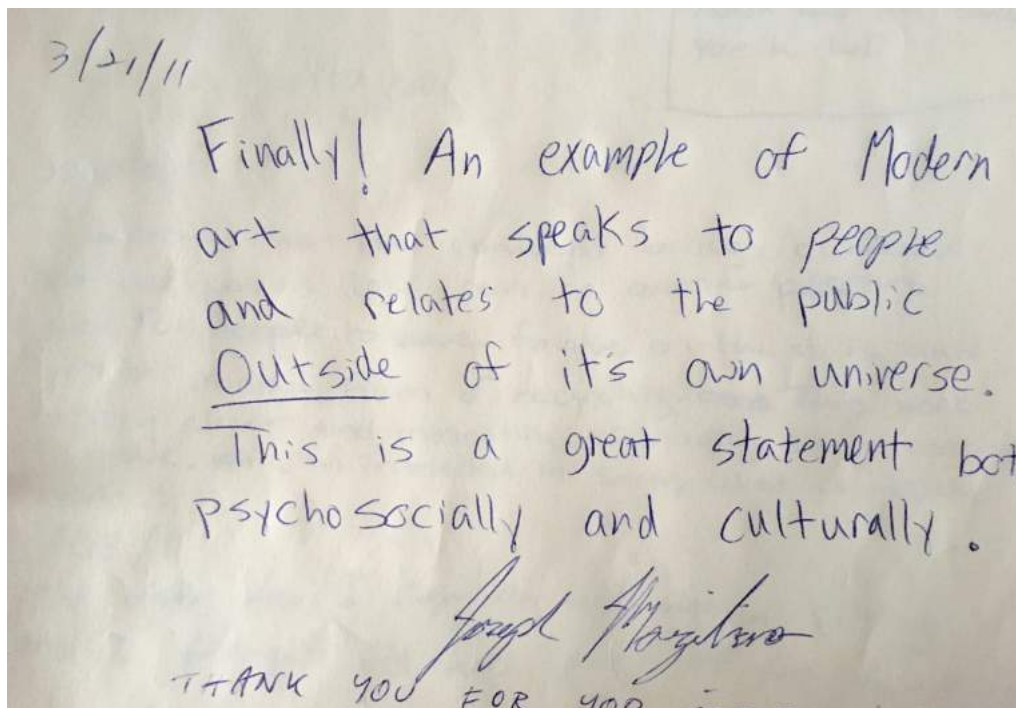 3/21/11
Finally! An example of Modern
art that speaks to people
and relates to the public
Outside of it's own universe.
This is a great statement bot
psychosocially and culturally.
Joseph
THANK YOU FOR YOU